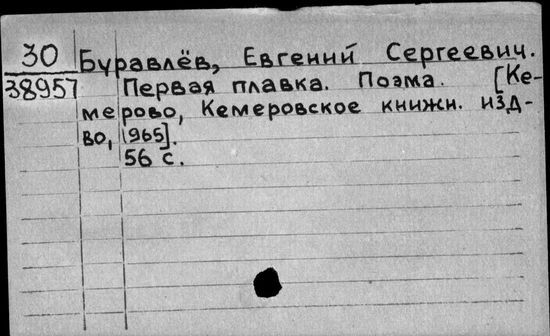 30
38957
Буравлёв, Евгений Сергеевич.
Первая плавка. Поэма. [Ке-
мерово, Кемеровское книжн. изд-
во, 1965].
56 с.